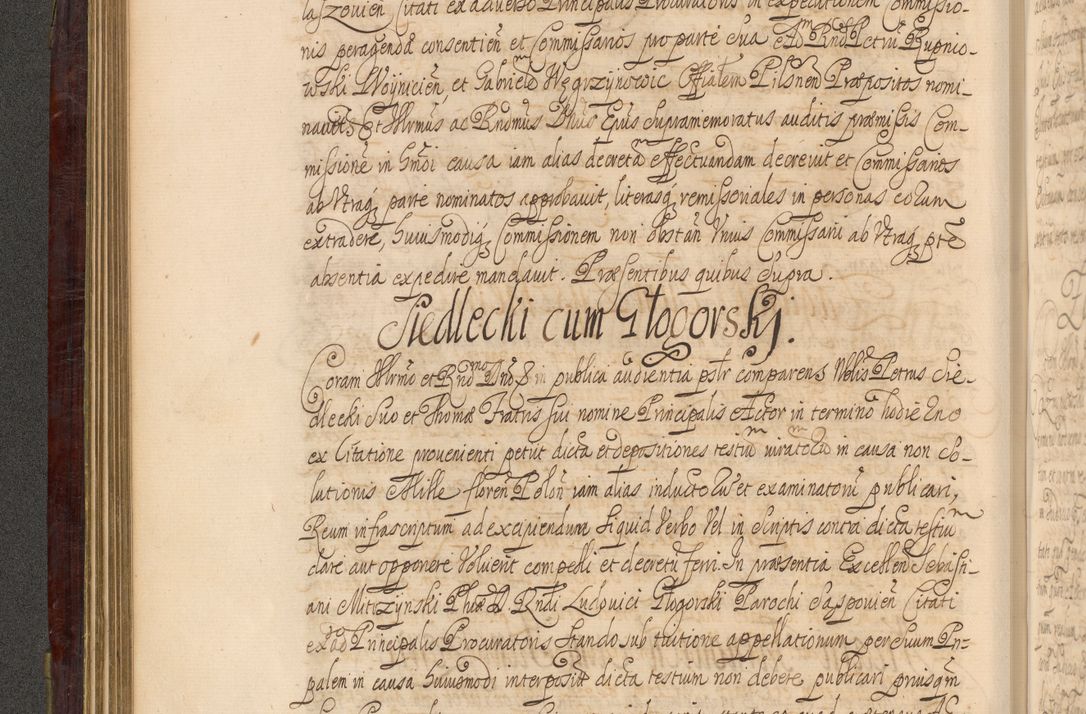 laszovien Citati ex adverso Principalis Procuratoris in expeditionem Commissio-
nis peragenda consentien et Commissarios pro parte sua A Rnd Petru Rupnio-
wski Woynicien, et Gabriele Węgrzynowic Officialem Pilsnen Præpositos nomi-
navit. Et Illrmus ac Rndmus Dnus Epus supramemoratus auditis præmissis Com-
missione in hmdi causa iam alias decreta effectuandam decrevit et Commissarios
ab Utraq parte nominatos approbavit, literasq remissoriales in personas eorum
extradere, huiusmodiq Commissionem non obstan Unius Commissarii ab Utraq pte
absentia expedire mandavit. Præsentibus quibus supra.
Siedlecki cum Głogorskj.
Coram Illrmo et Rndmo Dno in publica audientia pstr comparens Nobilis Petrus Sie-
dlecki suo et Thomæ Fratris sui nomine Principalis Actor in termino hodierno
ex Citatione provenienti petiit dicta et depositiones testium iuratorum in causa non so-
lutionis Mille floren Polon iam alias inductorum et examinatoru publicari,
Reum infrascriptum ad excipiendum siquid Verbo Vel in Scriptis contra dicta testium
dare aut opponere Voluerit compelli et decretu ferri. In præsentia Excellen Sebasti-
ani Miticzynski Phiæ D Rndi Ludovici Głogorski Parochi Sasponien Citati
ex ad Principalis Procuratoris stando sub tuitione appellationum per suum Pn-
palem in causa huiusmodi interposit dicta testium non debere publicari priusqm